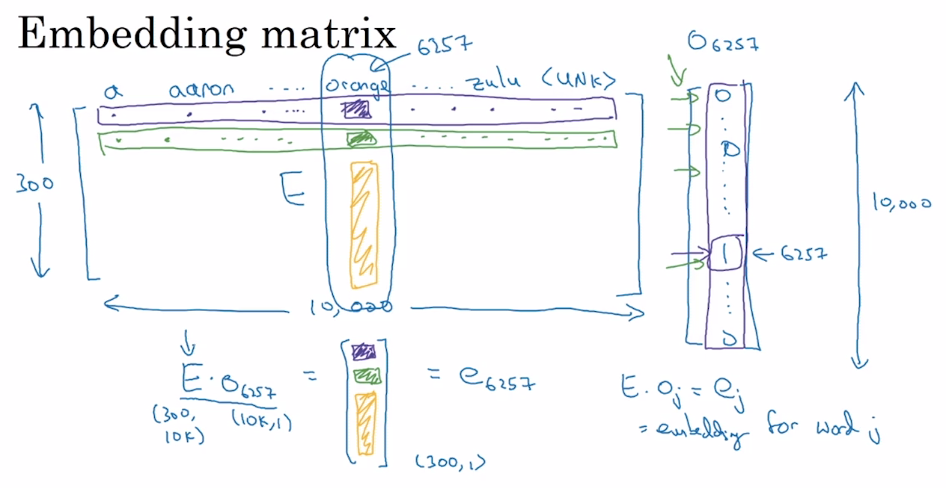 Embedding matrix
6257
O6257
a aaron .... orange .... zulu <UNK>
0
300
E
0
10,000
1 ← 6257
10,000
0
E · O6257 = [ ] = e6257
(300, 10K) (10K,1)
(300,1)
E · Oj = ej
= embedding for word j